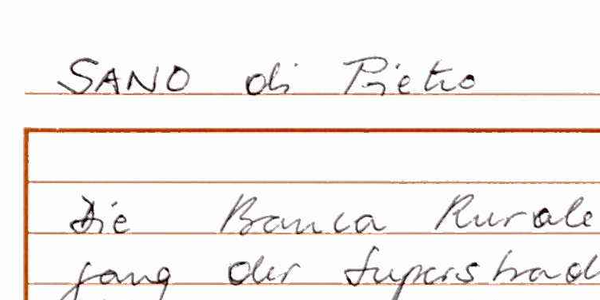 SANO di Pietro
Die Banca Rurale
gang der Superstrad